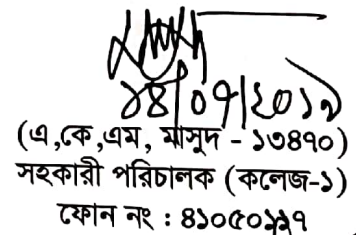 ১৪/০৭/২০১৯
(এ,কে,এম, মাসুদ - ১৩৪৭০)
সহকারী পরিচালক (কলেজ-১)
ফোন নং : ৪১০৫০১১৭